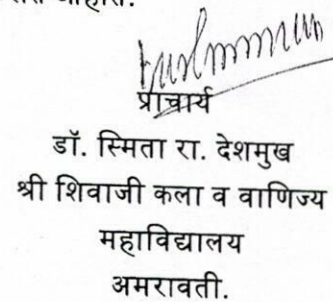 प्राचार्य
डॉ. स्मिता रा. देशमुख
श्री शिवाजी कला व वाणिज्य
महाविद्यालय
अमरावती.